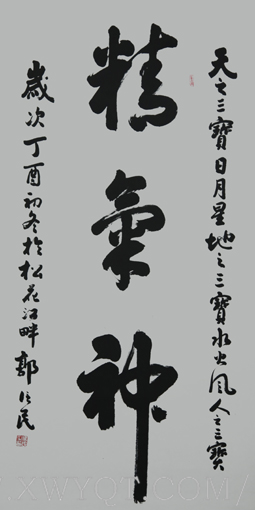 天之三寶日月星地之三寶水火风人之三寶
精氣神
歲次丁酉初冬於松花江畔郭民